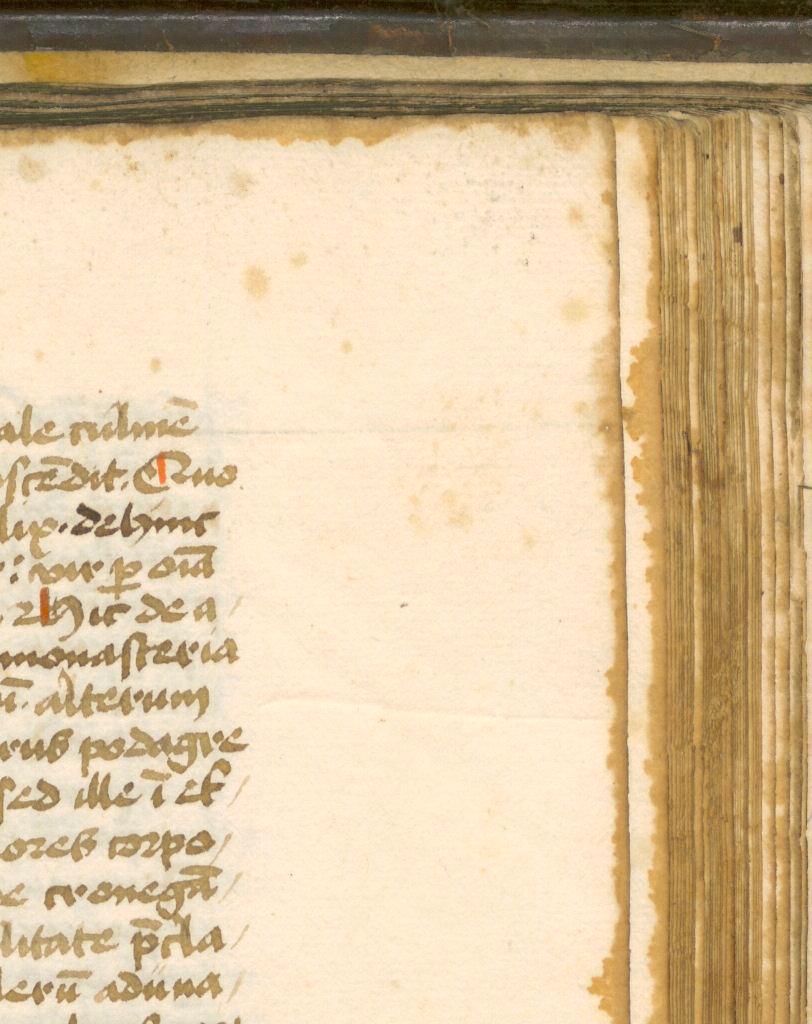 ale culmē
scēdit. Quo
lix. dehinc
vir ꝑ oīa
Hic de a
monasteria
alterum
rus podagre
sed ille ī ek
ores corpo
e cronegā
litate p̄cla
lerū aduna